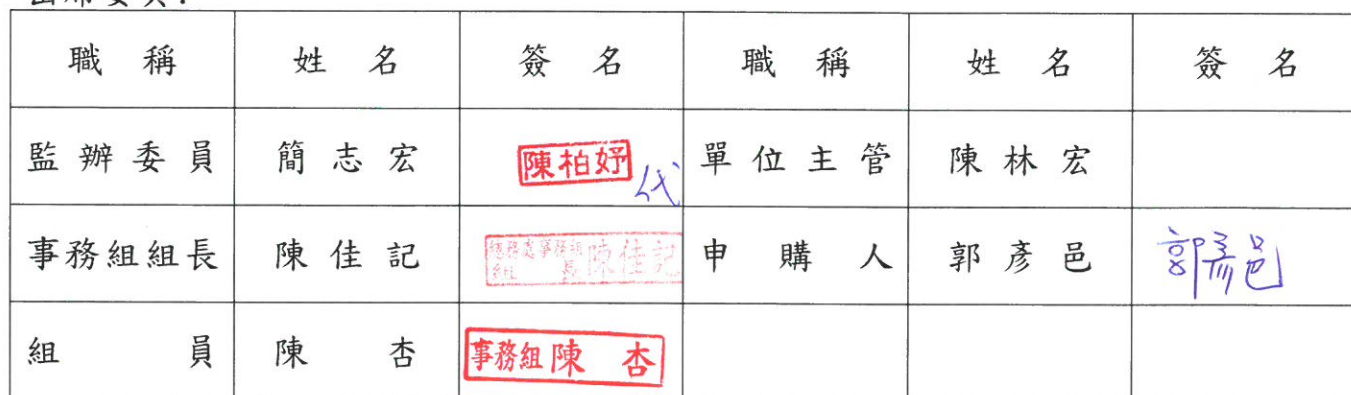 出席委員：
職稱 姓名 簽名 職稱 姓名 簽名
監辦委員 簡志宏 陳柏妤 代 單位主管 陳林宏
事務組組長 陳佳記 總務處事務組組長 陳佳記 申購人 郭彥邑 郭彥邑
組員 陳杏 事務組 陳杏